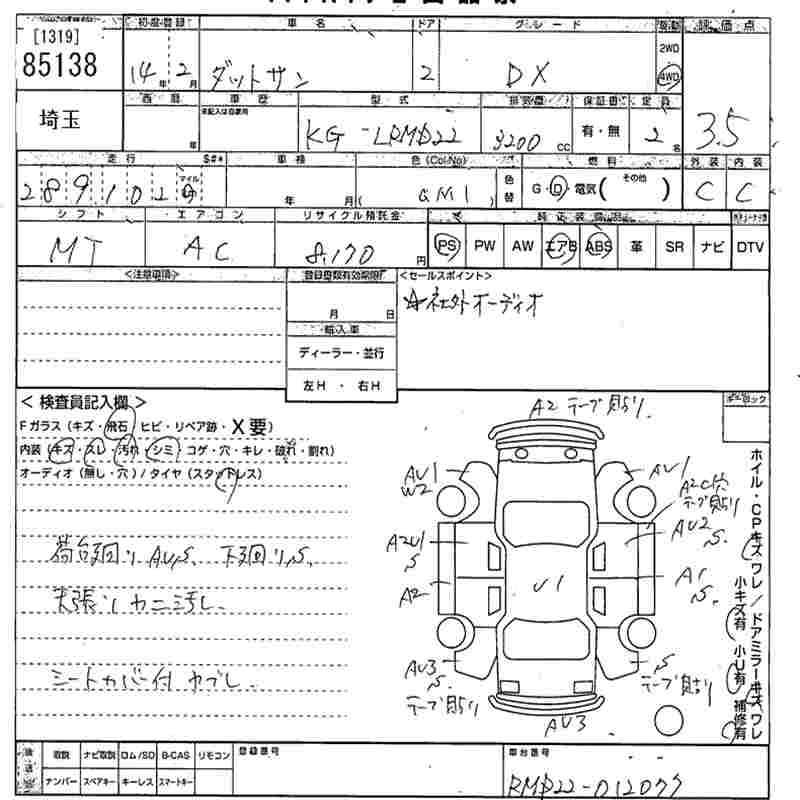 [1319]
85138
埼玉
初度登録
14年2月
車名
ダットサン
ドア
2
グレード
DX
駆動
2WD
4WD
評価点
3.5
西暦
年
車歴
未記入は自家用
型式
KG-LRMD22
排気量
3200cc
保証書
有・無
定員
2名
走行
289102
マイル
車検
年 月
色(Col-No)
( QM1 )
色替
燃料
G・D・電気( その他 )
外装
C
内装
C
シフト
MT
エアコン
AC
リサイクル預託金
8,170円
純正装備品
PS
PW
AW
エアB
ABS
革
SR
ナビ
DTV
<注意事項>
登録書類有効期限
月 日
輸入車
ディーラー・並行
左H・右H
<セールスポイント>
☆社外オーディオ
<検査員記入欄>
Fガラス(キズ・飛石・ヒビ・リペア跡・X要)
内装(キズ・スレ・汚れ・シミ・コゲ・穴・キレ・破れ・割れ)
オーディオ(無し・穴)/タイヤ(スタッドレス)
荷台廻り AU,S、下廻り,S、
天張り カニミ汚し、
シートカバー付 ヤブレ、
A2 テープ貼り、
AU1
W2
AU1
A2C穴
テープ貼り
A2U1
S
AU2
S、
A2
U1
A1
S、
AU3
S、
テープ貼り
S
テープ貼り
AU3
ホイル・CPキズワレ/ドアミラーキズワレ
小キズ有 小U有 補修有
取説
ナビ取説
ロム/SD
B-CAS
リモコン
ナンバー
スペアキー
キーレス
スマートキー
登録番号
車台番号
RMD22-012077